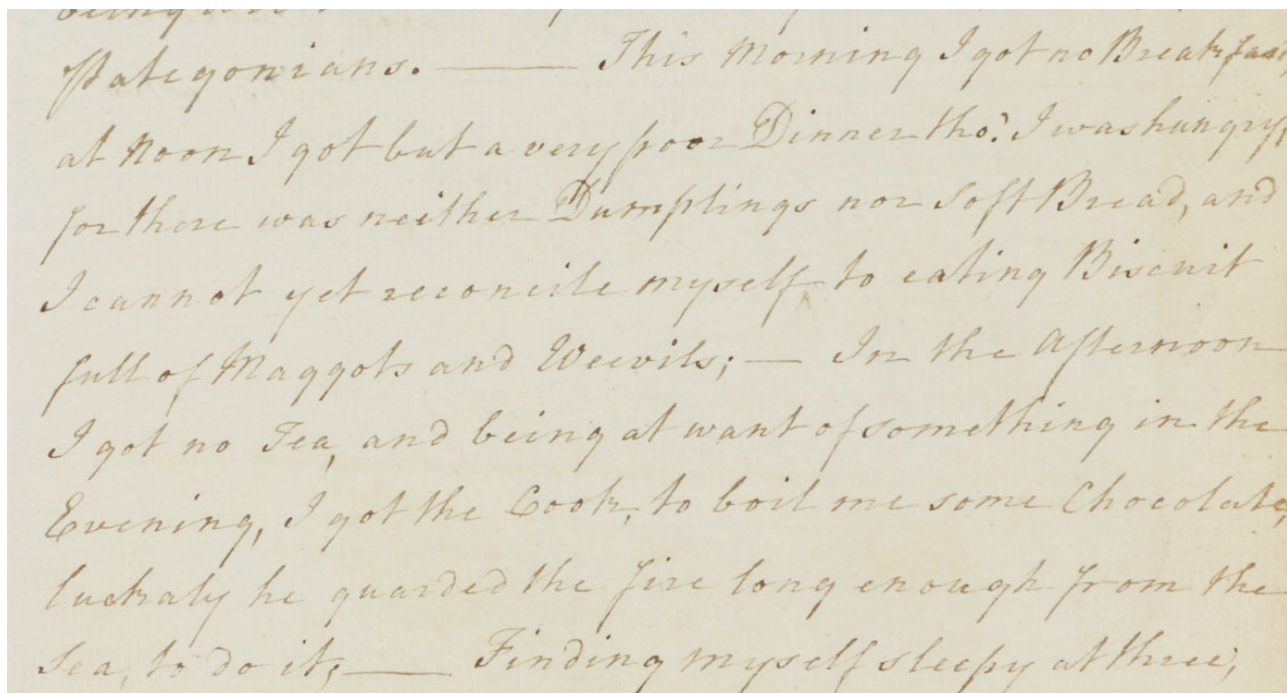 Pategonians. —— This Morning I got no Breakfast
at Noon I got but a very poor Dinner tho': I was hungry,
for there was neither Dumplings nor Soft Bread, and
I cannot yet reconcile myself to eating Biscuit
full of Maggots and Weevils; — In the Afternoon
I got no Tea, and being at want of something in the
Evening, I got the Cook, to boil me some Chocolate,
luckaly he guarded the fire long enough from the
Sea, to do it; —— Finding myself sleepy at three,